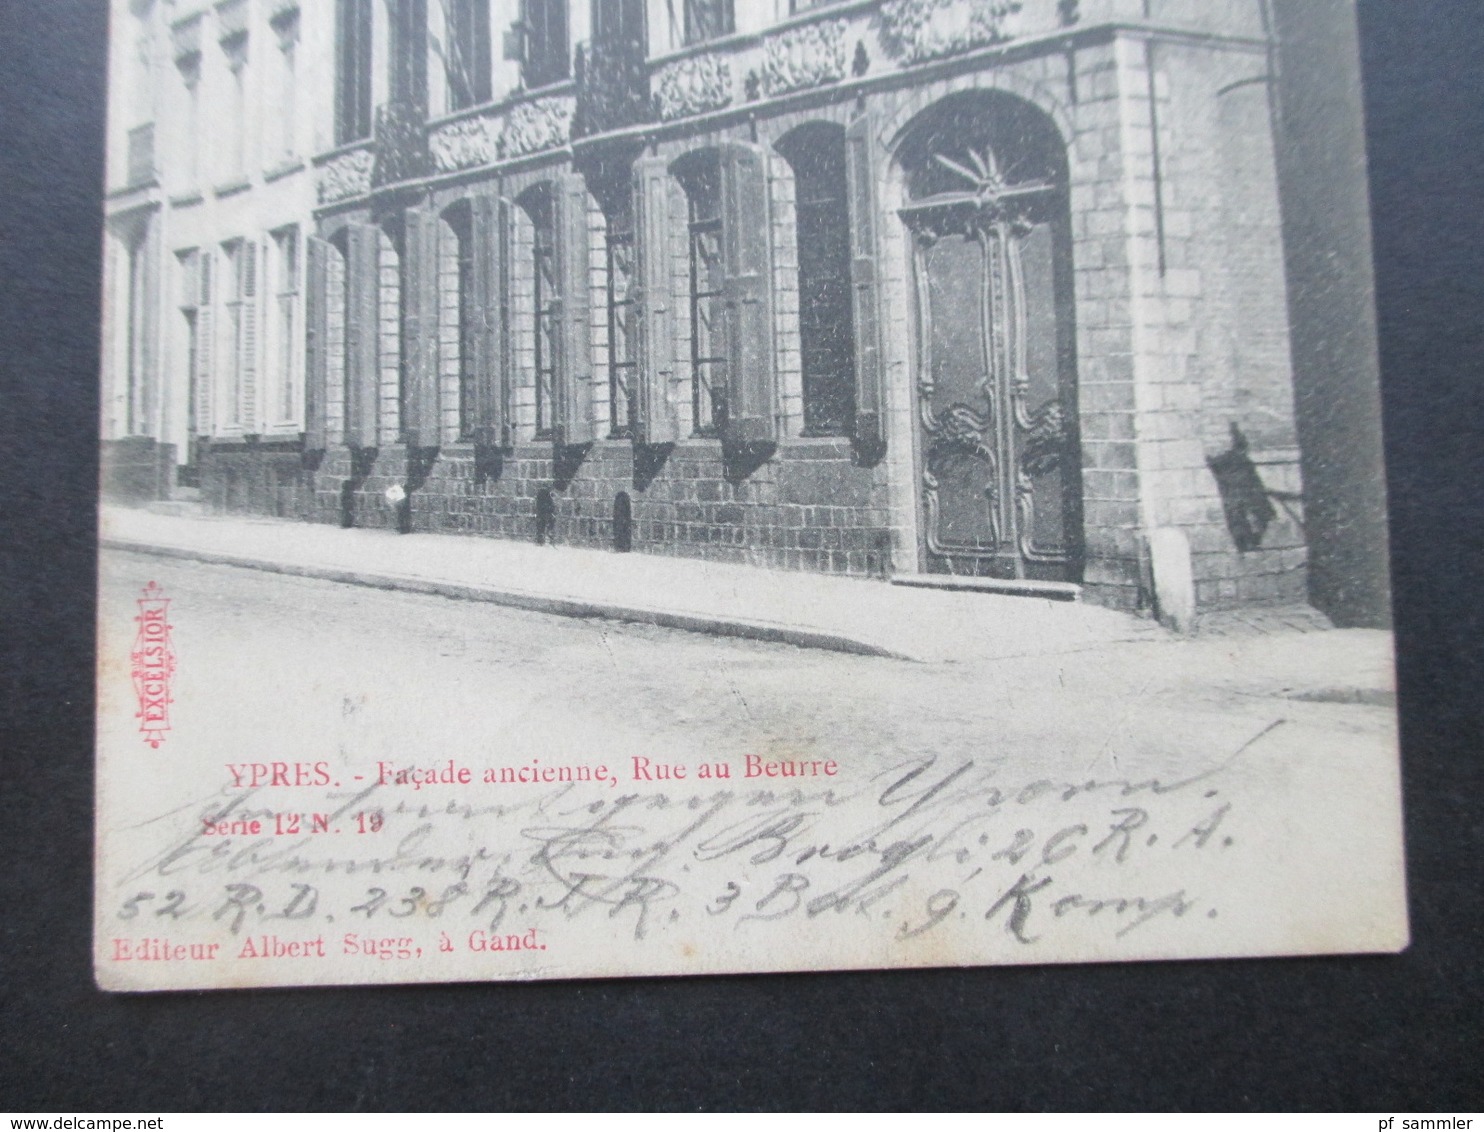 EXCELSIOR
YPRES. - Façade ancienne, Rue au Beurre
gegen Ypern.
Série 12 N. 19
Absender, Brogli, 26 R. A.
52 R. D. 238 R. I. R. 3 Bat. 9. Komp.
Editeur Albert Sugg, à Gand.
© www.delcampe.net
pf_sammler